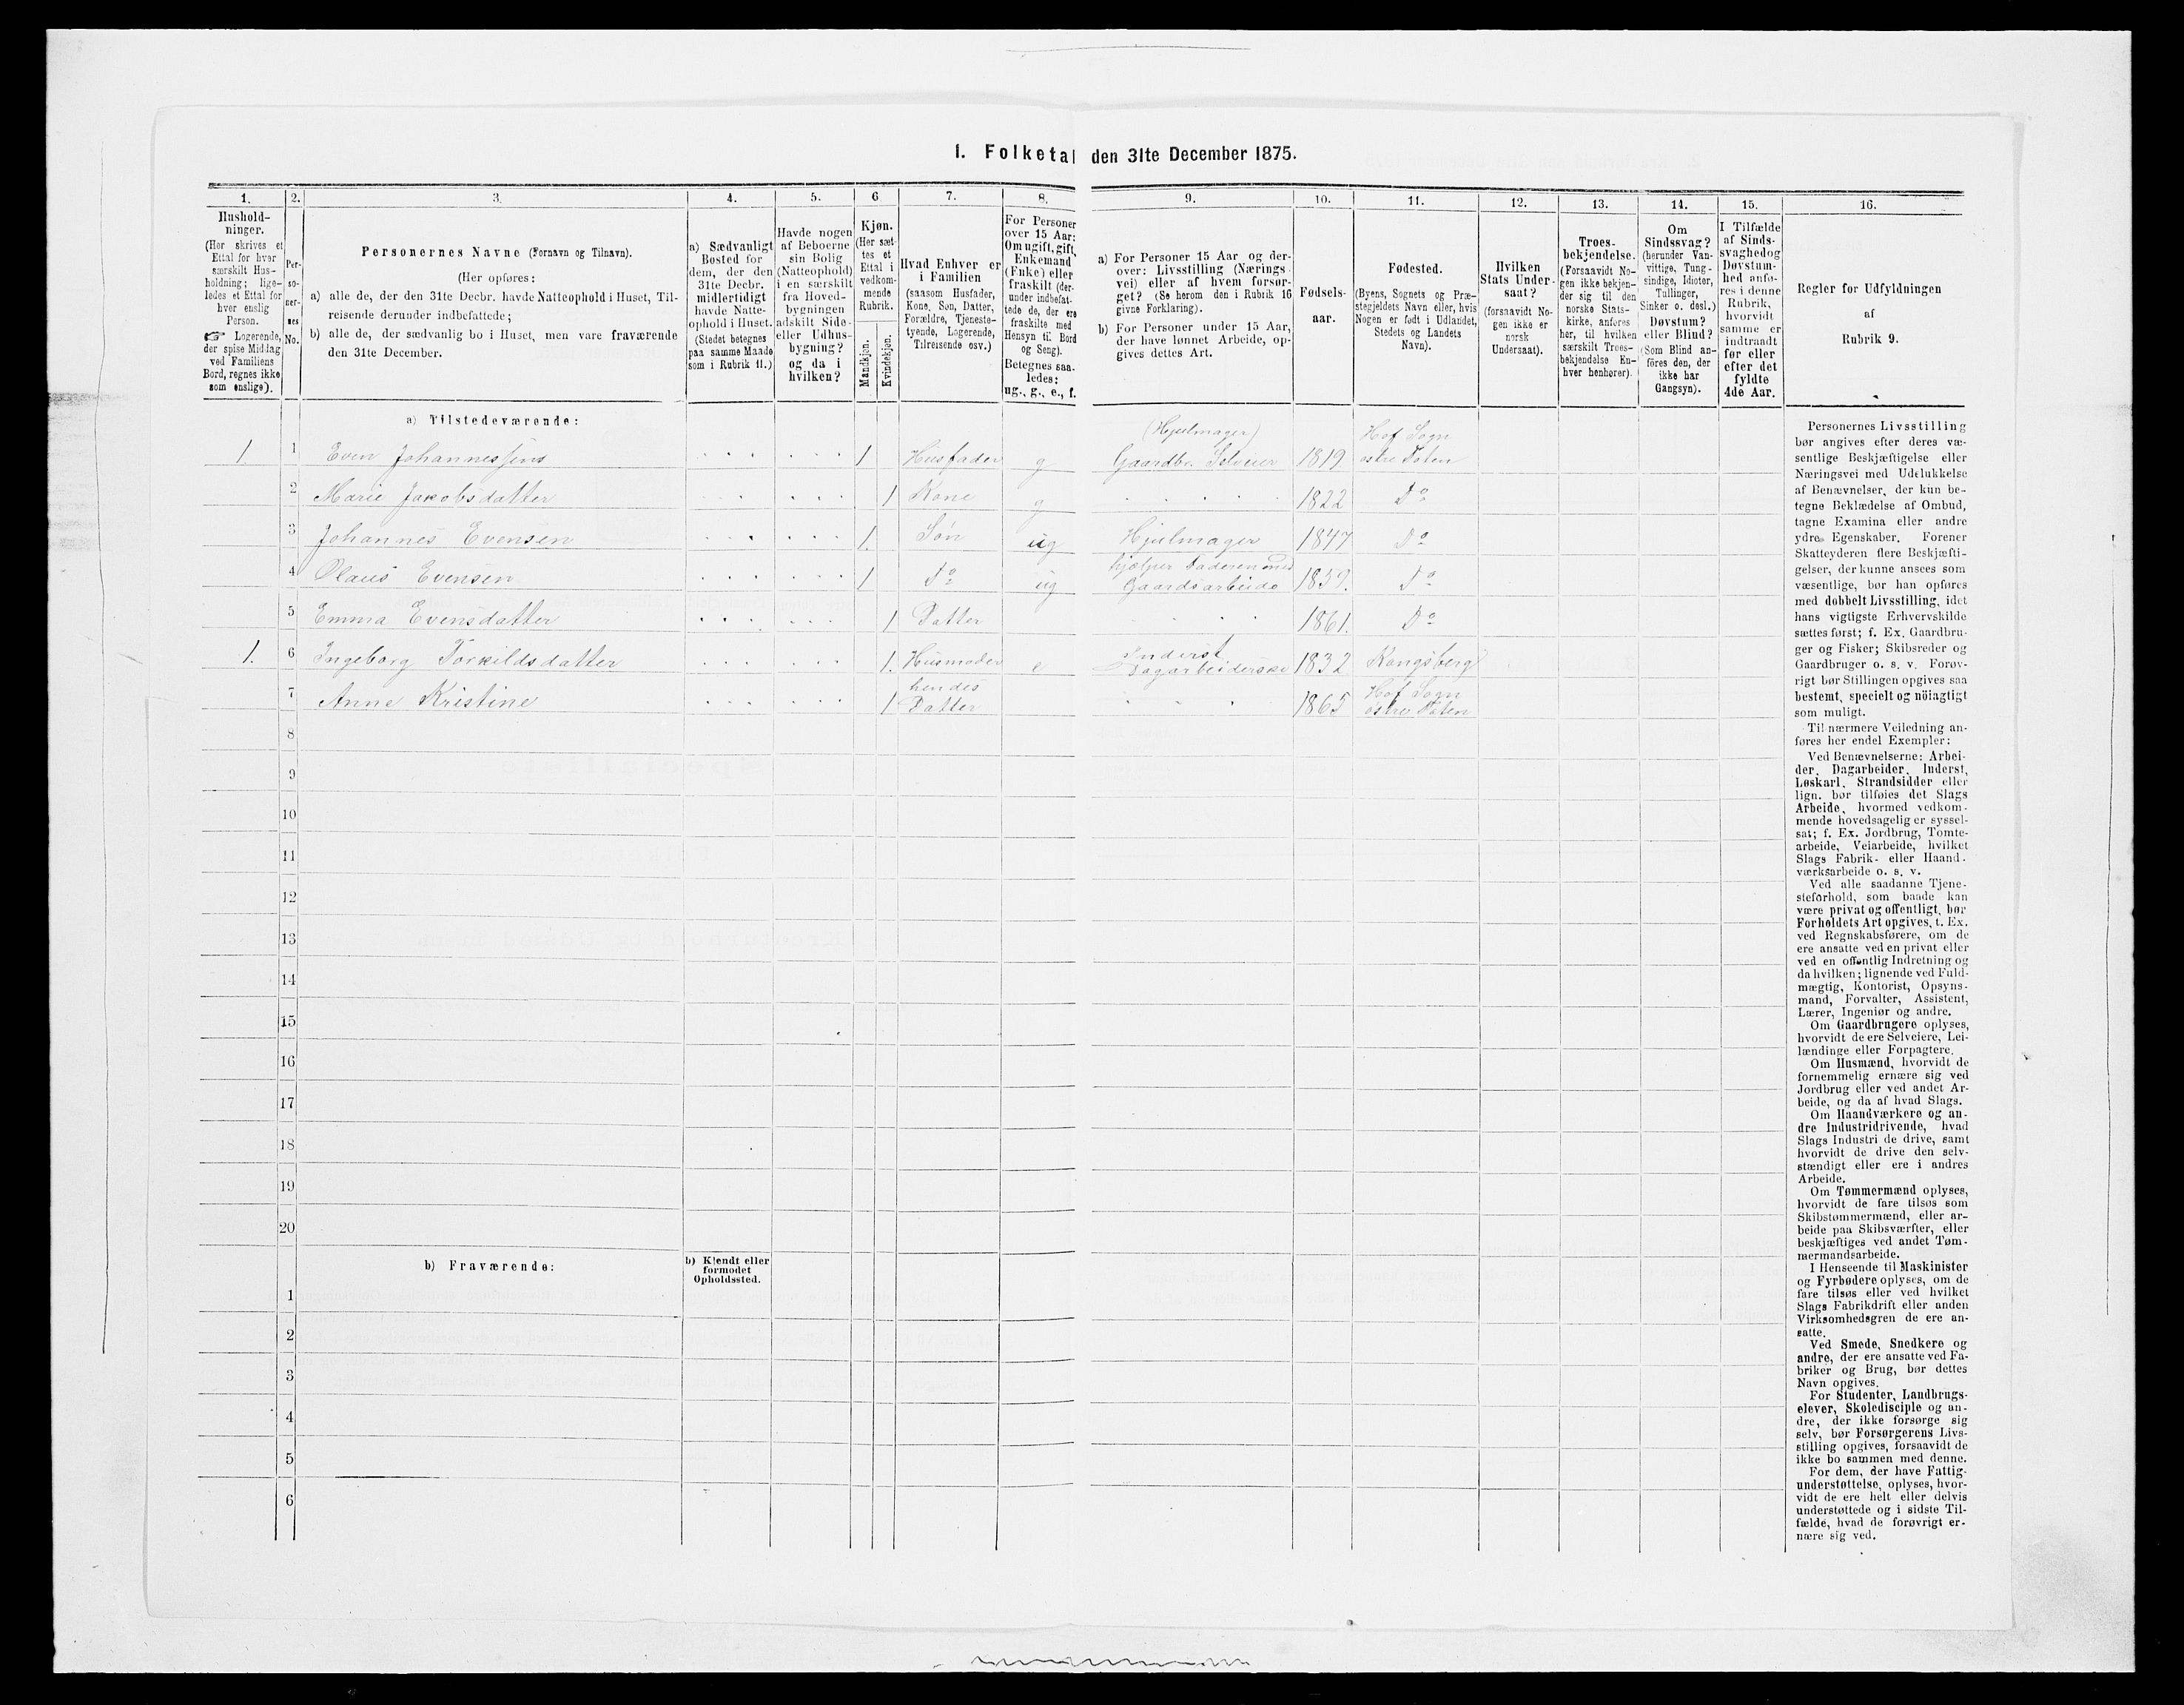 1. Folketal den 31te December 1875.
1. 2. 3. 4. 5. 6 7. 8. 9. 10. 11. 12. 13. 14. 15. 16.
Hushold-
ninger.
(Her skrives et
Ettal for hver
særskilt Hus-
holdning; lige-
ledes et Ettal for
hver enslig
Person.
☞ Logerende,
der spise Middag
ved Familiens
Bord, regnes ikke
som enslige).
Per-
so-
ner-
nes
No.
Personernes Navne (Fornavn og Tilnavn).
(Her opføres:
a) alle de, der den 31te Decbr. havde Natteophold i Huset, Til-
reisende derunder indbefattede;
b) alle de, der sædvanlig bo i Huset, men vare fraværende
den 31te December.
a) Sædvanligt
Bosted for
dem, der den
31te Decbr.
midlertidigt
havde Natte-
ophold i Huset.
(Stedet betegnes
paa samme Maade
som i Rubrik 11.)
Havde nogen
af Beboerne
sin Bolig
(Natteophold)
i en særskilt
fra Hoved-
bygningen
adskilt Side-
eller Udhus-
bygning?
og da i
hvilken?
Kjøn.
(Her sæt-
tes et
Ettal i
vedkom-
mende
Rubrik.
Mandkjøn.
Kvindekjøn.
Hvad Enhver er
i Familien
(saasom Husfader,
Kone, Søn, Datter,
Forældre, Tjeneste-
tyende, Logerende,
Tilreisende osv.)
For Personer
over 15 Aar:
Om ugift, gift,
Enkemand
(Enke) eller
fraskilt (der-
under indbefat-
tede de, der ere
fraskilte med
Hensyn til Bord
og Seng).
Betegnes saa-
ledes:
ug., g., e., f.
a) For Personer 15 Aar og der-
over: Livsstilling (Nærings-
vei) eller af hvem forsør-
get? (Se herom den i Rubrik 16
givne Forklaring).
b) For Personer under 15 Aar,
der have lønnet Arbeide, op-
gives dettes Art.
Fødsels-
aar.
Fødested.
(Byens, Sognets og Præ-
stegjeldets Navn eller, hvis
Nogen er født i Udlandet,
Stedets og Landets
Navn).
Hvilken
Stats Under-
saat?
(forsaavidt No-
gen ikke er
norsk
Undersaat).
Troes-
bekjendelse.
(Forsaavidt No-
gen ikke bekjen-
der sig til den
norske Stats-
kirke, anføres
her, til hvilken
særskilt Troes-
bekjendelse En-
hver henhører).
Om
Sindssvag?
(herunder Van-
vittige, Tung-
sindige, Idioter,
Tullinger,
Sinker o. desl.)
Døvstum?
eller Blind?
(Som Blind an-
føres den, der
ikke har
Gangsyn).
I Tilfælde
af Sinds-
svaghed og
Døvstum-
hed anfø-
res i denne
Rubrik,
hvorvidt
samme er
indtraadt
før eller
efter det
fyldte
4de Aar.
Regler for Udfyldningen
af
Rubrik 9.
a) Tilstedeværende:
(Hjulmager) Hof Sogn
1. 1 Even Johannessens 1 Husfader g Gaardbr. Selveier 1819 østre Toten
2 Marie Jakobsdatter 1 Kone g 1822 Do
3 Johannes Evensen 1. Søn ug Hjulmager 1847 Do
hjælper Faderen med
4 Olaus Evensen 1 Do ug Gaardsarbeide 1859. Do
5 Emma Evensdatter 1 Datter 1861. Do
Inderst
1. 6 Ingeborg Torkildsdatter 1. Husmoder e Dagarbeiderske 1832 Kongsberg
hendes Hof Sogn
7 Anne Kristine 1 Datter 1865 østre Toten
8
9
10
11
12
13
14
15
16
17
18
19
20
b) Fraværende:
b) Kjendt eller
formodet
Opholdssted.
1
2
3
4
5
6
Personernes Livsstilling
bør angives efter deres væ-
sentlige Beskjæftigelse eller
Næringsvei med Udelukkelse
af Benævnelser, der kun be-
tegne Beklædelse af Ombud,
tagne Examina eller andre
ydre Egenskaber. Forener
Skatteyderen flere Beskjæfti-
gelser, der kunne ansees som
væsentlige, bør han opføres
med dobbelt Livsstilling, idet
hans vigtigste Erhvervskilde
sættes først; f. Ex. Gaardbru-
ger og Fisker; Skibsreder og
Gaardbruger o. s. v. Forøv-
rigt bør Stillingen opgives saa
bestemt, specielt og nöiagtigt
som muligt.
Til nærmere Veiledning an-
føres her endel Exempler:
Ved Benævnelserne: Arbei-
der, Dagarbeider, Inderst,
Løskarl, Strandsidder eller
lign. bør tilføies det Slags
Arbeide, hvormed vedkom-
mende hovedsagelig er syssel-
sat; f. Ex. Jordbrug, Tomte-
arbeide, Veiarbeide, hvilket
Slags Fabrik- eller Haand-
værksarbeide o. s. v.
Ved alle saadanne Tjene-
steforhold, som baade kan
være privat og offentligt, bør
Forholdets Art opgives, t. Ex.
ved Regnskabsførere, om de
ere ansatte ved en privat eller
ved en offentlig Indretning og
da hvilken; lignende ved Fuld-
mægtig, Kontorist, Opsyns-
mand, Forvalter, Assistent,
Lærer, Ingeniør og andre.
Om Gaardbrugere oplyses,
hvorvidt de ere Selveiere, Lei-
lændinge eller Forpagtere.
Om Husmænd, hvorvidt de
fornemmelig ernære sig ved
Jordbrug eller ved andet Ar-
beide, og da af hvad Slags.
Om Haandværkere og an-
dre Industridrivende, hvad
Slags Industri de drive, samt
hvorvidt de drive den selv-
stændigt eller ere i andres
Arbeide.
Om Tømmermænd oplyses,
hvorvidt de fare tilsøs som
Skibstømmermænd, eller ar-
beide paa Skibsværfter, eller
beskjæftiges ved andet Tøm-
mermandsarbeide.
I Henseende til Maskinister
og Fyrbødere oplyses, om de
fare tilsøs eller ved hvilket
Slags Fabrikdrift eller anden
Virksomhedsgren de ere an-
satte.
Ved Smede, Snedkere og
andre, der ere ansatte ved Fa-
briker og Brug, bør dettes
Navn opgives.
For Studenter, Landbrugs-
elever, Skoledisciple og an-
dre, der ikke forsørge sig
selv, bør Forsørgerens Livs-
stilling opgives, forsaavidt de
ikke bo sammen med denne.
For dem, der have Fattig-
understøttelse, oplyses, hvor-
vidt de ere helt eller delvis
understøttede og i sidste Til-
fælde, hvad de forøvrigt er-
nære sig ved.